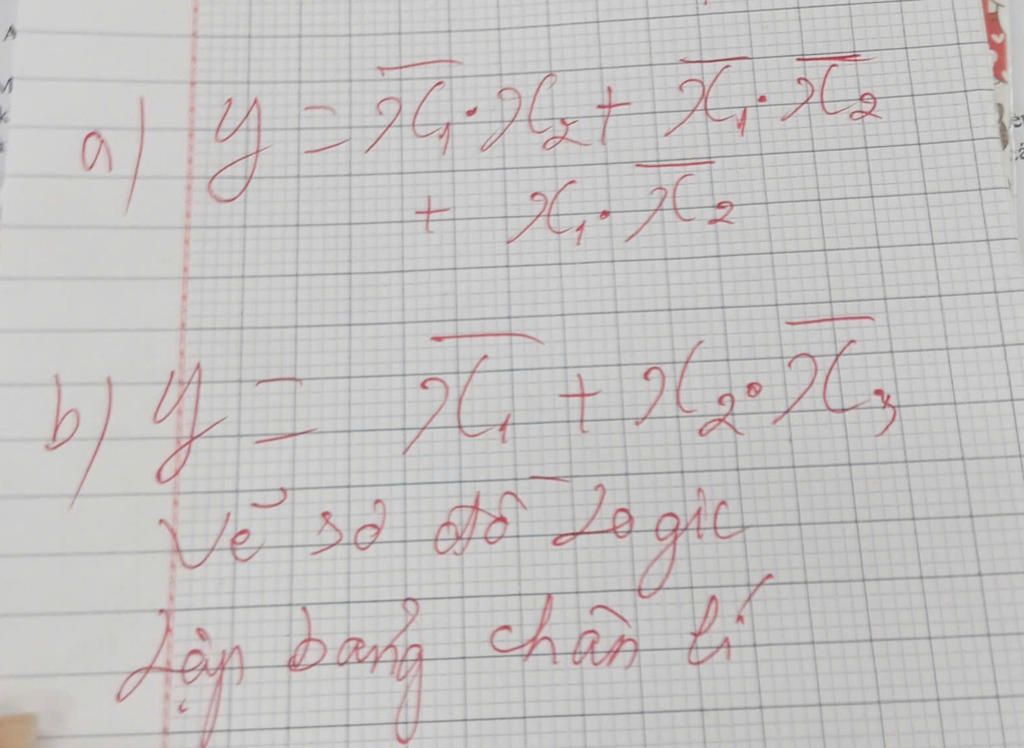 a) y = x̅₁ · x₂ + x̅₁ · x̅₂
+ x₁ · x̅₂
b) y = x̅₁ + x₂ · x̅₃
Vẽ sơ đồ Logic
Lập bảng chân lí